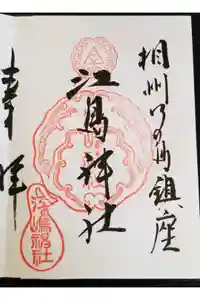 相州江の島鎮座
江島神社
奉拝
江嶋神社